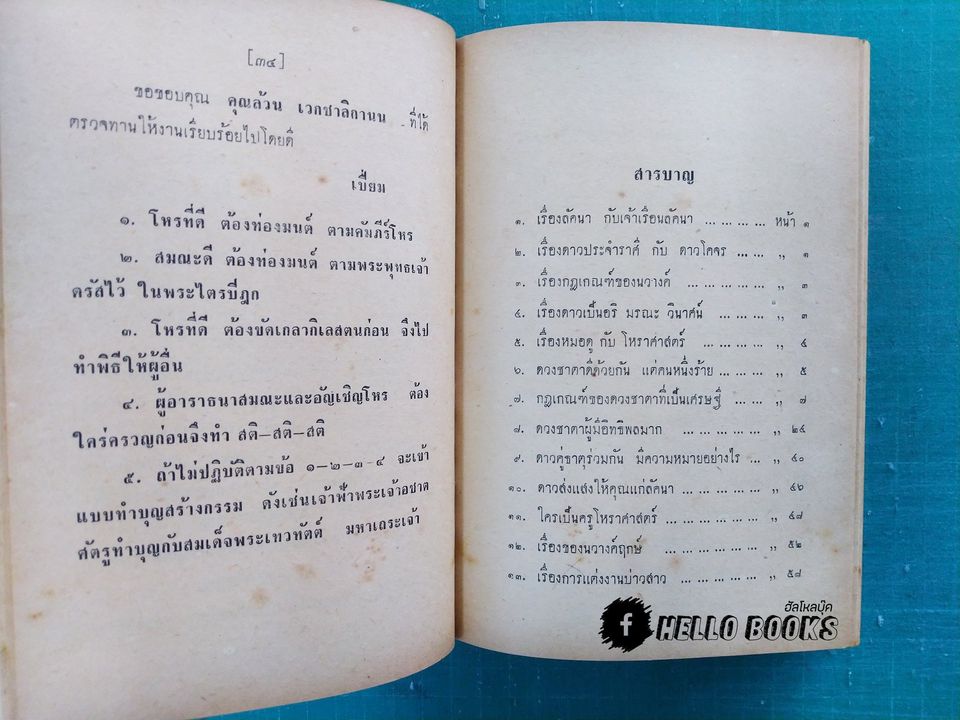 [๓๔]
ขอขอบคุณ คุณล้วน เวกชาลิกานน ที่ได้
ตรวจทานให้งานเรียบร้อยไปโดยดี
เปี่ยม
๑. โหรที่ดี ต้องท่องมนต์ ตามคัมภีร์โหร
๒. สมณะดี ต้องท่องมนต์ ตามพระพุทธเจ้า
ตรัสไว้ ในพระไตรปีฎก
๓. โหรที่ดี ต้องขัดเกลากิเลสตนก่อน จึงไป
ทำพิธีให้ผู้อื่น
๔. ผู้อาราธนาสมณะและอัญเชิญโหร ต้อง
ใคร่ครวญก่อนจึงทำ สติ–สติ–สติ
๕. ถ้าไม่ปฏิบัติตามข้อ ๑–๒–๓–๔ จะเข้า
แบบทำบุญสร้างกรรม ดังเช่นเจ้าฟ้าพระเจ้าอชาต
ศัตรูทำบุญกับสมเด็จพระเทวทัตต์ มหาเถระเจ้า
สารบาญ
๑. เรื่องลัคนา กับเจ้าเรือนลัคนา ... ... ... ... หน้า ๑
๒. เรื่องดาวประจำราศี กับ ดาวโคจร ... ... ,, ๑
๓. เรื่องกฎเกณฑ์ของนวางค์ ... ... ... ... ,, ๓
๔. เรื่องดาวเป็นอริ มรณะ วินาศน์ ... ... ... ,, ๓
๕. เรื่องหมอดู กับ โหราศาสตร์ ... ... ... ,, ๔
๖. ดวงชาตาดีด้วยกัน แต่คนหนึ่งร้าย ... ... ,, ๕
๗. กฎเกณฑ์ของดวงชาตาที่เป็นเศรษฐี ... ... ,, ๗
๘. ดวงชาตาผู้มีอิทธิพลมาก ... ... ... ... ,, ๒๔
๙. ดาวคู่ธาตุร่วมกัน มีความหมายอย่างไร ... ... ,, ๔๐
๑๐. ดาวส่งแสงให้คุณแก่ลัคนา ... ... ... ... ,, ๔๖
๑๑. ใครเป็นครูโหราศาสตร์ ... ... ... ... ,, ๔๘
๑๒. เรื่องของนวางค์ฤกษ์ ... ... ... ... ... ,, ๕๒
๑๓. เรื่องการแต่งงานบ่าวสาว ... ... ... ... ,, ๕๘
ฮัลโหลบุ๊ค
f HELLO BOOKS